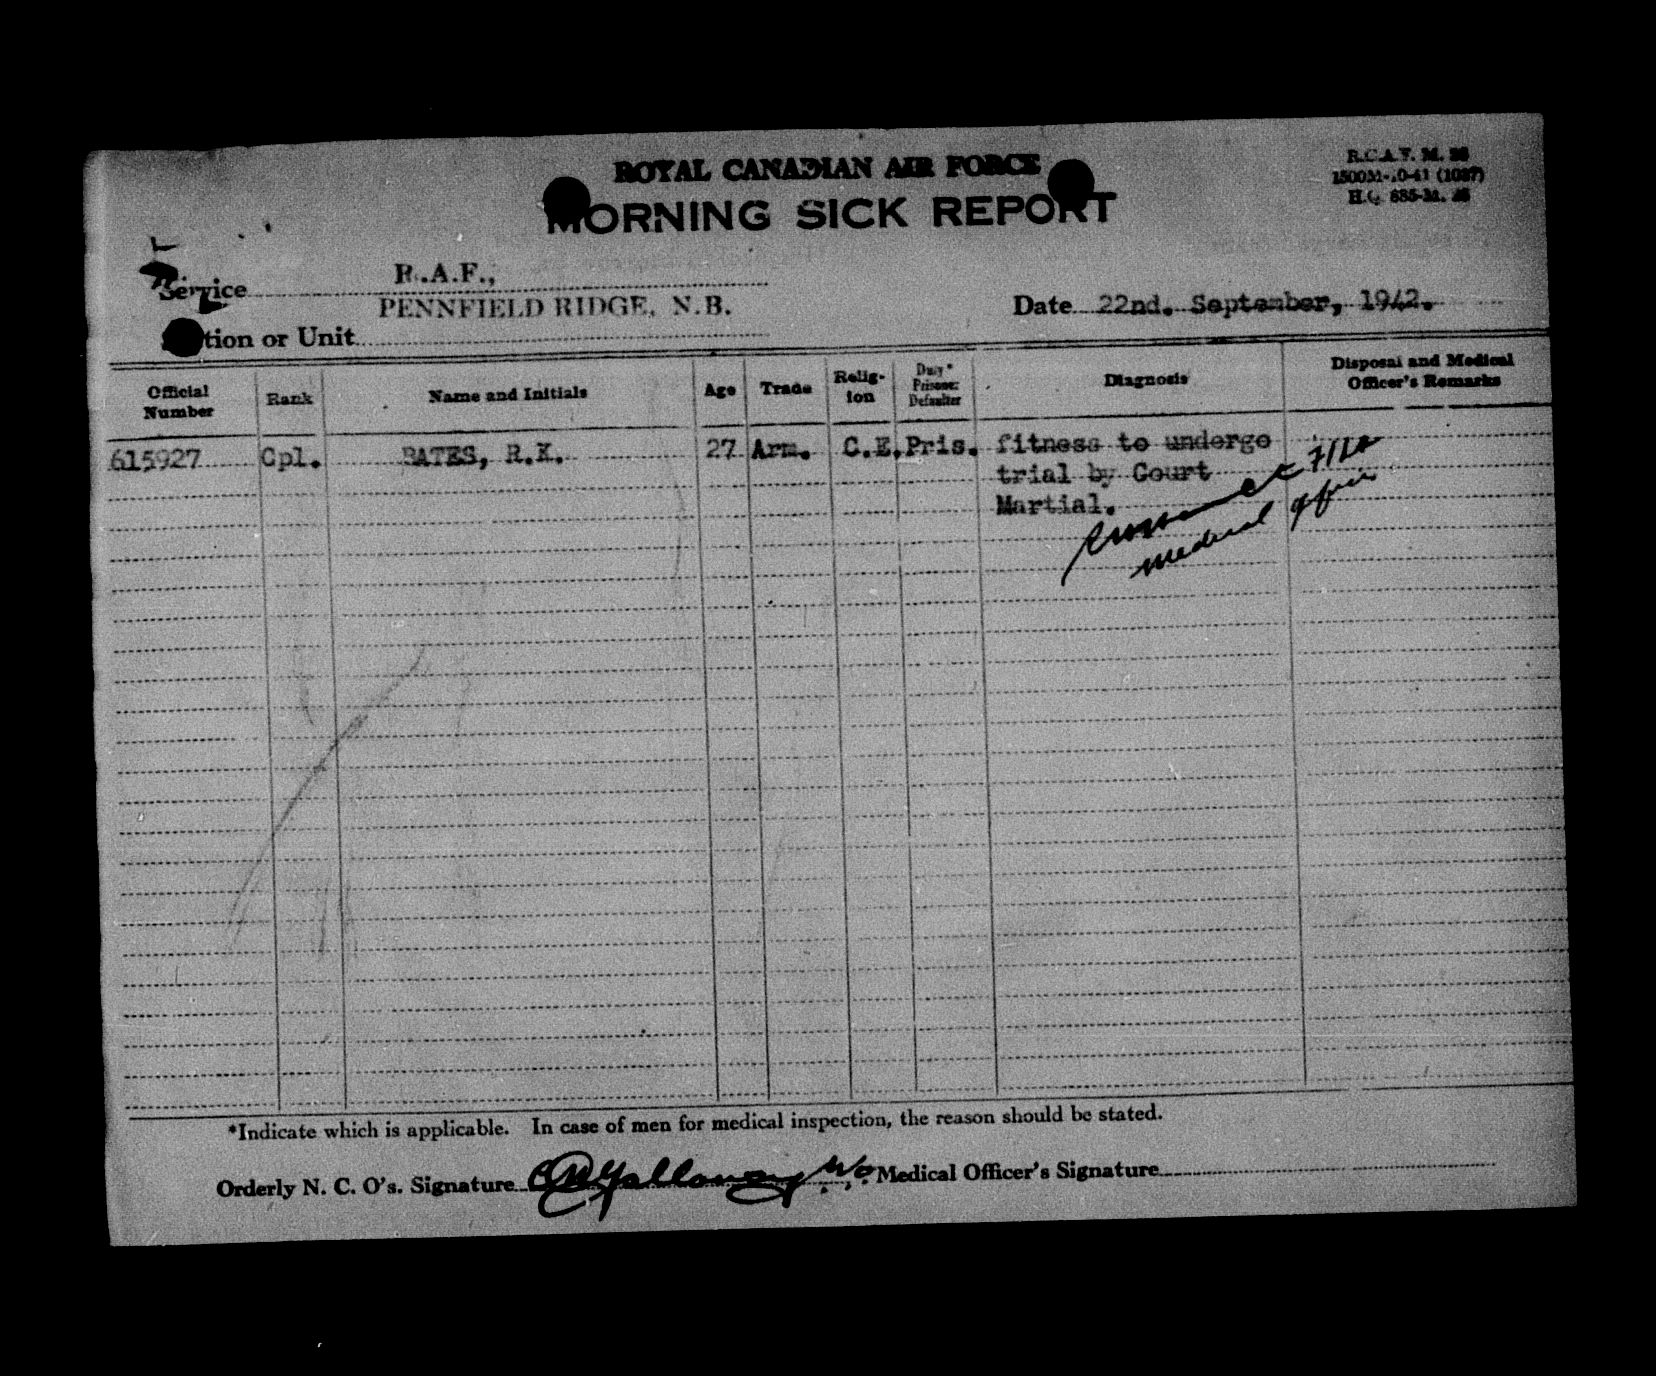 ROYAL CANADIAN AIR FORCE
MORNING SICK REPORT
R.C.A.F. M.
H.Q. 885-M.
Service R.A.F.,
PENNFIELD RIDGE, N.B.
tion or Unit
Date 22nd. September, 1942.
Official Number Rank Name and Initials Age Trade Relig-ion Duty* Prisoner Defaulter Diagnosis Disposal and Medical Officer's Remarks
615927 Cpl. BATES, R.K. 27 Arm. C.E. Pris. fitness to undergo
trial by Court
Martial.
F/Lt
medical officer
*Indicate which is applicable. In case of men for medical inspection, the reason should be stated.
Orderly N. C. O's. Signature Galloway Medical Officer's Signature